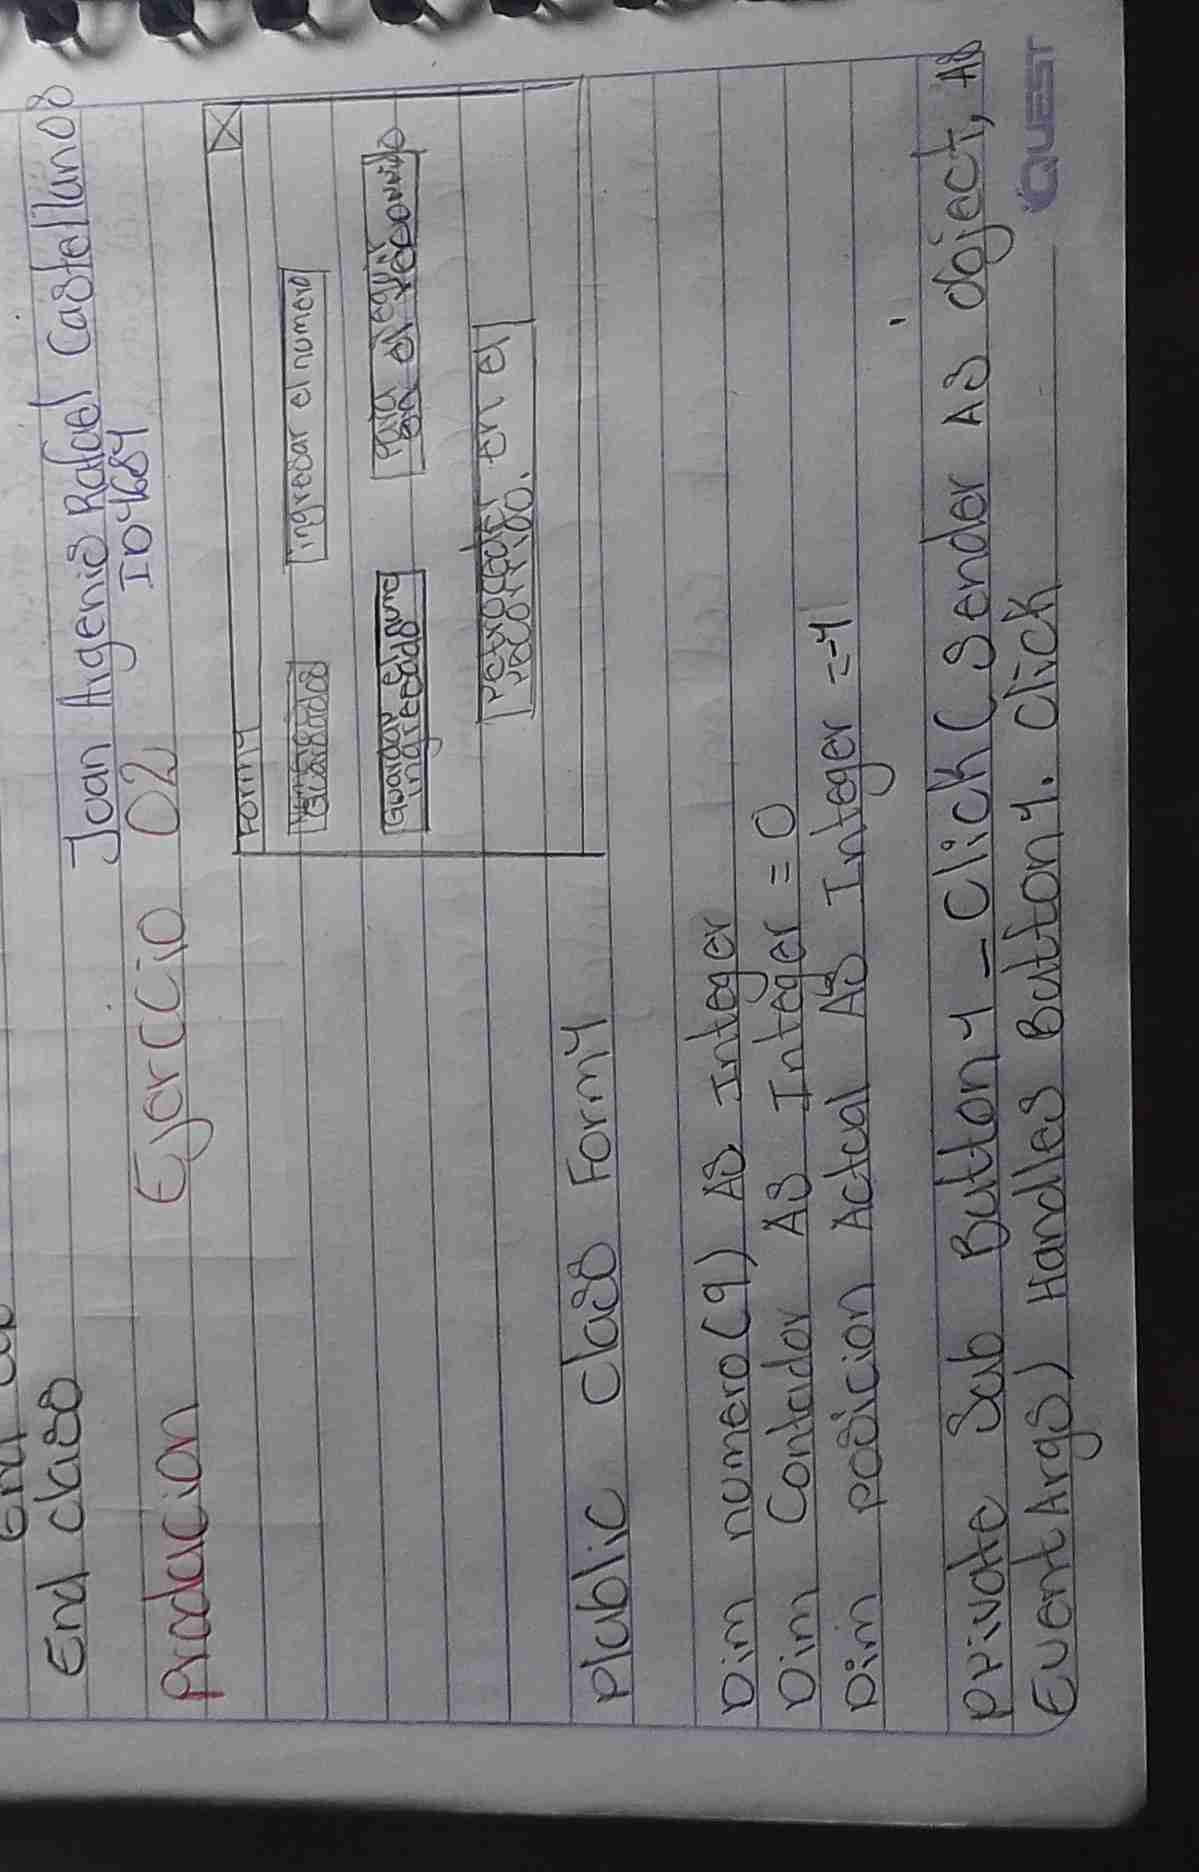 End class
Juan Argenis Rafael Castellanos
ID 4684
Producion Ejercicio 02
Form1
Guardados
ingresar el numero
Guardar el num
ingresado
Para seguir
en el recorrido
Retroceder en el
recorrido.
Public Class Form1
Dim numero(9) AS Integer
Dim Contador AS Integer = 0
Dim posicion Actual AS Integer = -1
Private Sub Button1_Click(Sender AS object, AS
EventArgs) Handles Button1.Click
QUEST